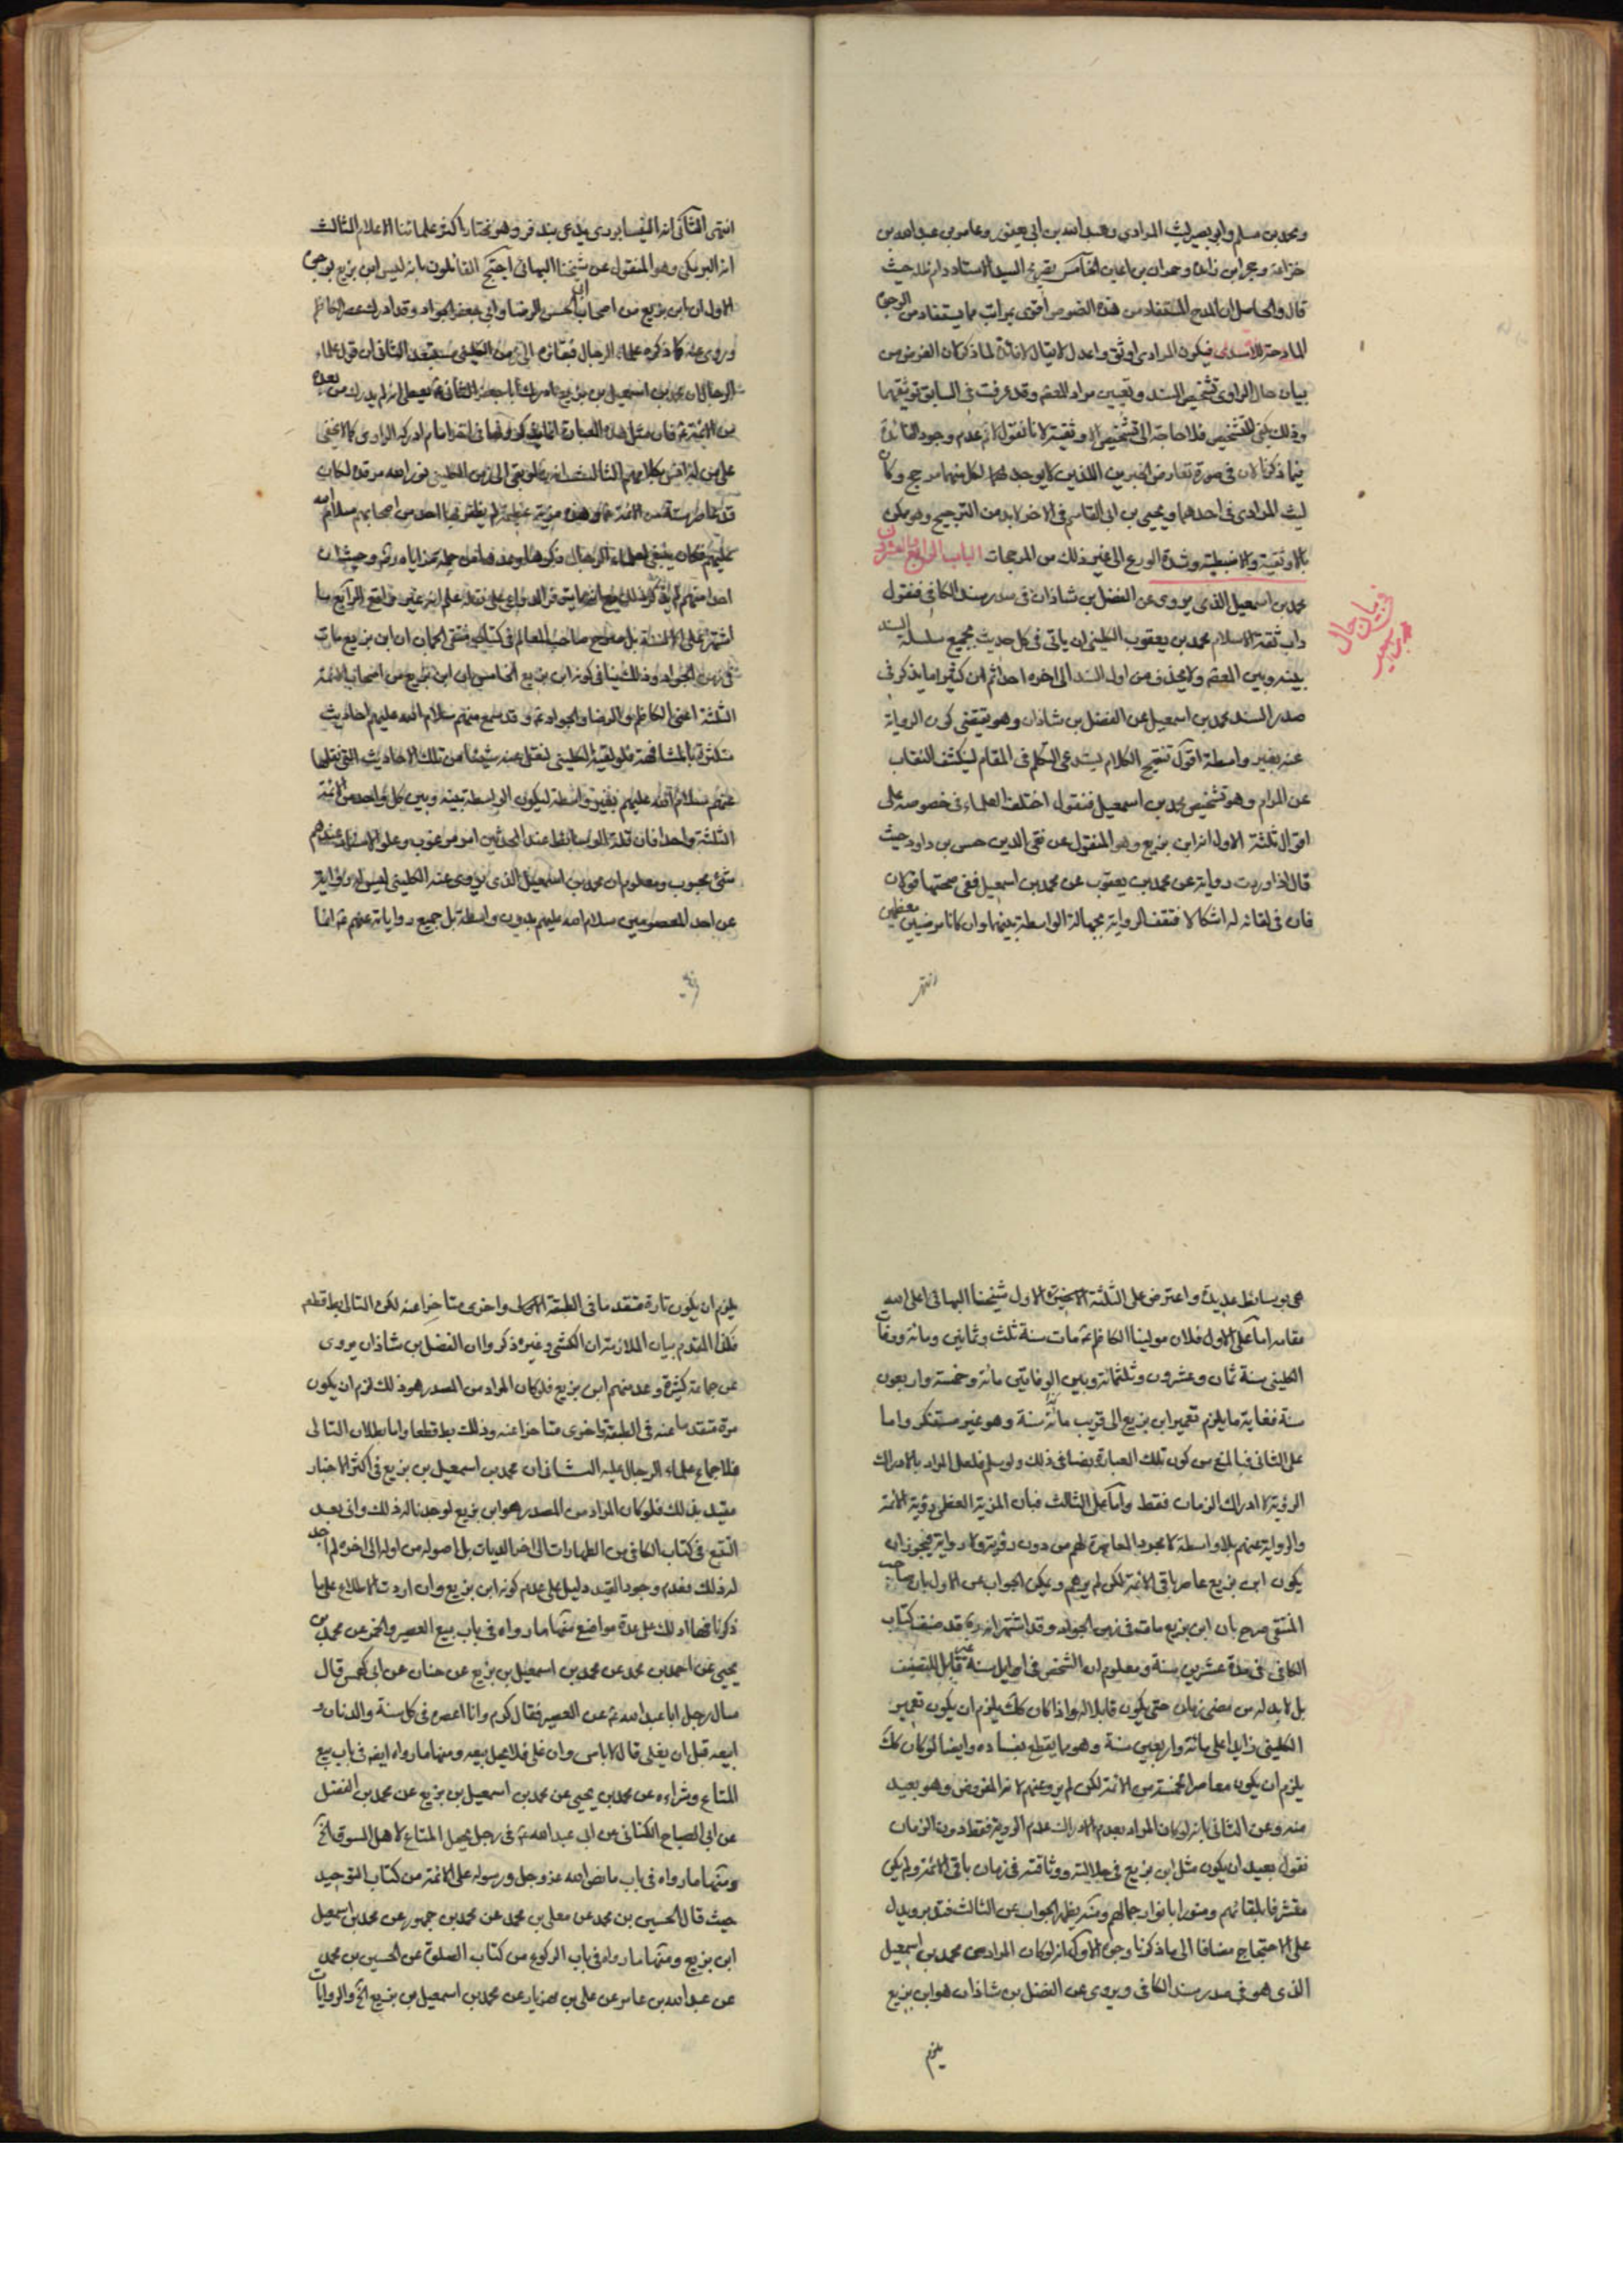 ومحمد بن مسلم وابي بصير ليث المرادي وعبد الله بن ابي يعفور وعامر بن عبد الله بن
قال والحاصل ان المدح المستفاد من هذه النصوص اقوى بمراتب مما يستفاد من الوجوه
المادحة للاسدى فيكون المرادى اوثق واعدل لا يقال لا فائدة لما ذكر لان الغرض من
بيان حال الراوى تشخيص السند وتعيين مراد المعصوم وقد عرفت فى السابق توثيقهما
وذلك يكفى للتشخيص فلا حاجة الى تشخيص الاوثقية لانا نقول لا نم عدم وجود الفائدة
فيما ذكرنا لان فى صورة تعارض الخبرين اللذين لا يوجد لهما لكل منهما مرجح وكان
ليث المرادى فى احدهما ويحيى بن ابى القاسم فى الاخر لا بد من الترجيح وهو يكون
بالاوثقية والاضبطية وشدة الورع الى غير ذلك من المرجحات الباب الرابع والعشرون
فى بيان حال محمد بن اسمعيل
محمد بن اسمعيل الذى يروى عن الفضل بن شاذان فى صدر سند الكافى فنقول
داب ثقة الاسلام محمد بن يعقوب الكلينى ان ياتى فى كل حديث بجميع سلسلة السند
بينه وبين المعصوم ولا يحذف من اول السند الى اخره احدا ثم ان كثيرا ما يذكر فى
صدر السند محمد بن اسمعيل عن الفضل بن شاذان وهو يقتضى كون الرواية
عنه بغير واسطة اقول تنقيح الكلام يستدعى التكلم فى المقام ليكشف النقاب
عن المرام وهو تشخيص محمد بن اسمعيل فنقول اختلف العلماء فى خصوصه على
اقوال ثلثة الاول انه ابن بزيع وهو المنقول عن تقى الدين حسن بن داود حيث
قال اذا وردت رواية عن محمد بن يعقوب عن محمد بن اسمعيل ففى صحتها قولان
فان فى لقائه له اشكالا فتقف الرواية بجهالة الواسطة بينهما وان كانا مرضيين معظمين
انتهى
انتهى الثانى انه النيسابورى يدعى بندفر وهو مختار اكثر علمائنا الاعلام الثالث
انه البرمكى وهو المنقول عن شيخنا البهائى احتج القائلون بانه ليس ابن بزيع بوجوه
الاول ان ابن بزيع من اصحاب ابى الحسن الرضا وابى جعفر الجواد وقد ادرك عصر الكاظم
وروى عنه كما ذكره علماء الرجال فبقائه الى زمن الكلينى مستبعد الثانى ان قول علماء
الرجال ان محمد بن اسمعيل بن بزيع ادرك ابا جعفر الثانى ع يعطى انه لم يدرك من بعده
من الائمة ع فان مثل هذه العبارة انما يذكرونها فى اخر امام ادركه الراوى كما لا يخفى
على من له انس بكلامهم الثالث انه لو بقى الى زمن الكلينى نور الله مرقده لكان
قد عاصر ستة من الائمة ع وهذه مزية عظيمة لم يظفر بها احد من اصحابهم سلام الله
عليهم فكان ينبغى لعلماء الرجال ذكرها وعدها من جملة مزاياه
اشتهر على الالسنة بل صرح صاحب المعالم فى كتابه منتقى الجمان ان ابن بزيع مات
فى زمن الجواد وذلك ينافى كونه ابن بزيع الخامس ان ابن بزيع من اصحاب الائمة
الثلثة اعنى الكاظم والرضا والجواد ع وقد سمع منهم سلام الله عليهم احاديث
متكثرة بالمشافهة فلو لقيه الكلينى لنقل عنه شيئا من تلك الاحاديث التى نقلها
عنهم سلام الله عليهم بغير واسطة ليكون الواسطة بينه وبين كل واحد من الائمة
الثلثة واحدا فان قلة الوسائط عند المحدثين امر مرغوب وعلو الاسناد عندهم
شئ محبوب ومعلوم ان محمد بن اسمعيل الذى يروى عنه الكلينى ليس له رواية
عن احد المعصومين سلام الله عليهم بدون واسطة بل جميع رواياته عنهم ع انما
هى بوسائط عديدة واعترض على الثلثة الاول شيخنا البهائى اعلى الله
مقامه اما على الاول فلان مولينا الكاظم ع مات سنة ثلث وثمانين ومائة ووفات
الكلينى سنة ثمان وعشرون وثلثمائة وبين الوفاتين مائة وخمسة واربعون
سنة فغاية ما يلزم تعمير ابن بزيع الى قريب مائة سنة وهو غير مستنكر واما
على الثانى فبالمنع من كون تلك العبارة نصا فى ذلك ولو سلم فلعل المراد بالادراك
الرؤية لا ادراك الزمان فقط واما على الثالث فبان المزية العظمى رؤية الائمة
والرواية عنهم بلا واسطة لا مجرد المعاصرة لهم من دون رؤية ولا رواية فيجوز ان
يكون ابن بزيع عاصر باقى الائمة لكن لم يرهم ويمكن الجواب عن الاول بان صاحب
المنتقى صرح بان ابن بزيع مات فى زمن الجواد وقد اشتهر انه قد صنف كتاب
الكافى فى مدة عشرين سنة ومعلوم ان الشخص فى اوايل سنه غير قابل للتصنيف
بل لا بد له من مضى زمان حتى يكون قابلا له واذا كان كك يلزم ان يكون تعمير
الكلينى زايدا على مائة واربعين سنة وهو مما يقطع بفساده وايضا لو كان كك
يلزم ان يكون معاصرا لخمسة من الائمة لكن لم يرو عنهم لانه المفروض وهو بعيد
منه وعن الثانى بانه لو كان المراد بعدم الادراك عدم الروية فقط دون الزمان
نقول بعيد ان يكون مثل ابن بزيع فى جلالته ووثاقته فى زمان باقى الائمة ولم يكن
على الاحتجاج مضافا الى ما ذكرنا وجوه الاول انه لو كان المراد من محمد بن اسمعيل
الذى هو فى صدر سند الكافى ويروى عن الفضل بن شاذان هو ابن بزيع
يلزم
يلزم ان يكون تارة متقدما فى الطبقة الاولى واخرى متاخرا عنه لكن التالى بط قطعا
فكذا المقدم بيان الملازمة ان الكشى وغيره ذكروا ان الفضل بن شاذان يروى
عن جماعة كثيرة وعد منهم ابن بزيع فلو كان المراد من المصدر هو ذلك لزم ان يكون
مرة متقدما عنه فى الطبقة واخرى متاخرا عنه وذلك بط قطعا واما بطلان التالى
فلاجماع علماء الرجال عليه الثانى ان محمد بن اسمعيل بن بزيع فى اكثر الاخبار
مقيد بذلك فلو كان المراد من المصدر هو ابن بزيع لوجدنا له ذلك وانى بعد
التتبع فى كتاب الكافى من الطهارات الى اخر الديات بل اصوله من اوله الى اخره لم اجد
له ذلك فعدم وجود القيد دليل على عدم كونه ابن بزيع وان اردت الاطلاع على ما
ذكرنا فها ادلك على عدة مواضع منها ما رواه فى باب بيع العصير والخمر عن محمد بن
يحيى عن احمد بن محمد عن محمد بن اسمعيل بن بزيع عن حنان عن ابى كهمس قال
سال رجل ابا عبد الله ع عن العصير فقال كرم وانا اعصره فى كل سنة والدنان و
ابيعه قبل ان يغلى قال لا باس وان غلى فلا يحل بيعه ومنها ما رواه ايضه فى باب بيع
المتاع وشراءه عن محمد بن يحيى عن محمد بن اسمعيل بن بزيع عن محمد بن الفضل
عن ابى الصباح الكنانى عن ابى عبد الله ع فى رجل يحمل المتاع لاهل السوق الخ
ومنها ما رواه فى باب ما نص الله عز وجل ورسوله على الائمة من كتاب التوحيد
حيث قال الحسين بن محمد عن معلى بن محمد عن محمد بن جمهور عن محمد بن اسمعيل
ابن بزيع ومنها ما رواه فى باب الركوع من كتاب الصلوة عن الحسين بن محمد
عن عبد الله بن عامر عن على بن مهزيار عن محمد بن اسمعيل بن بزيع الخ والروايات